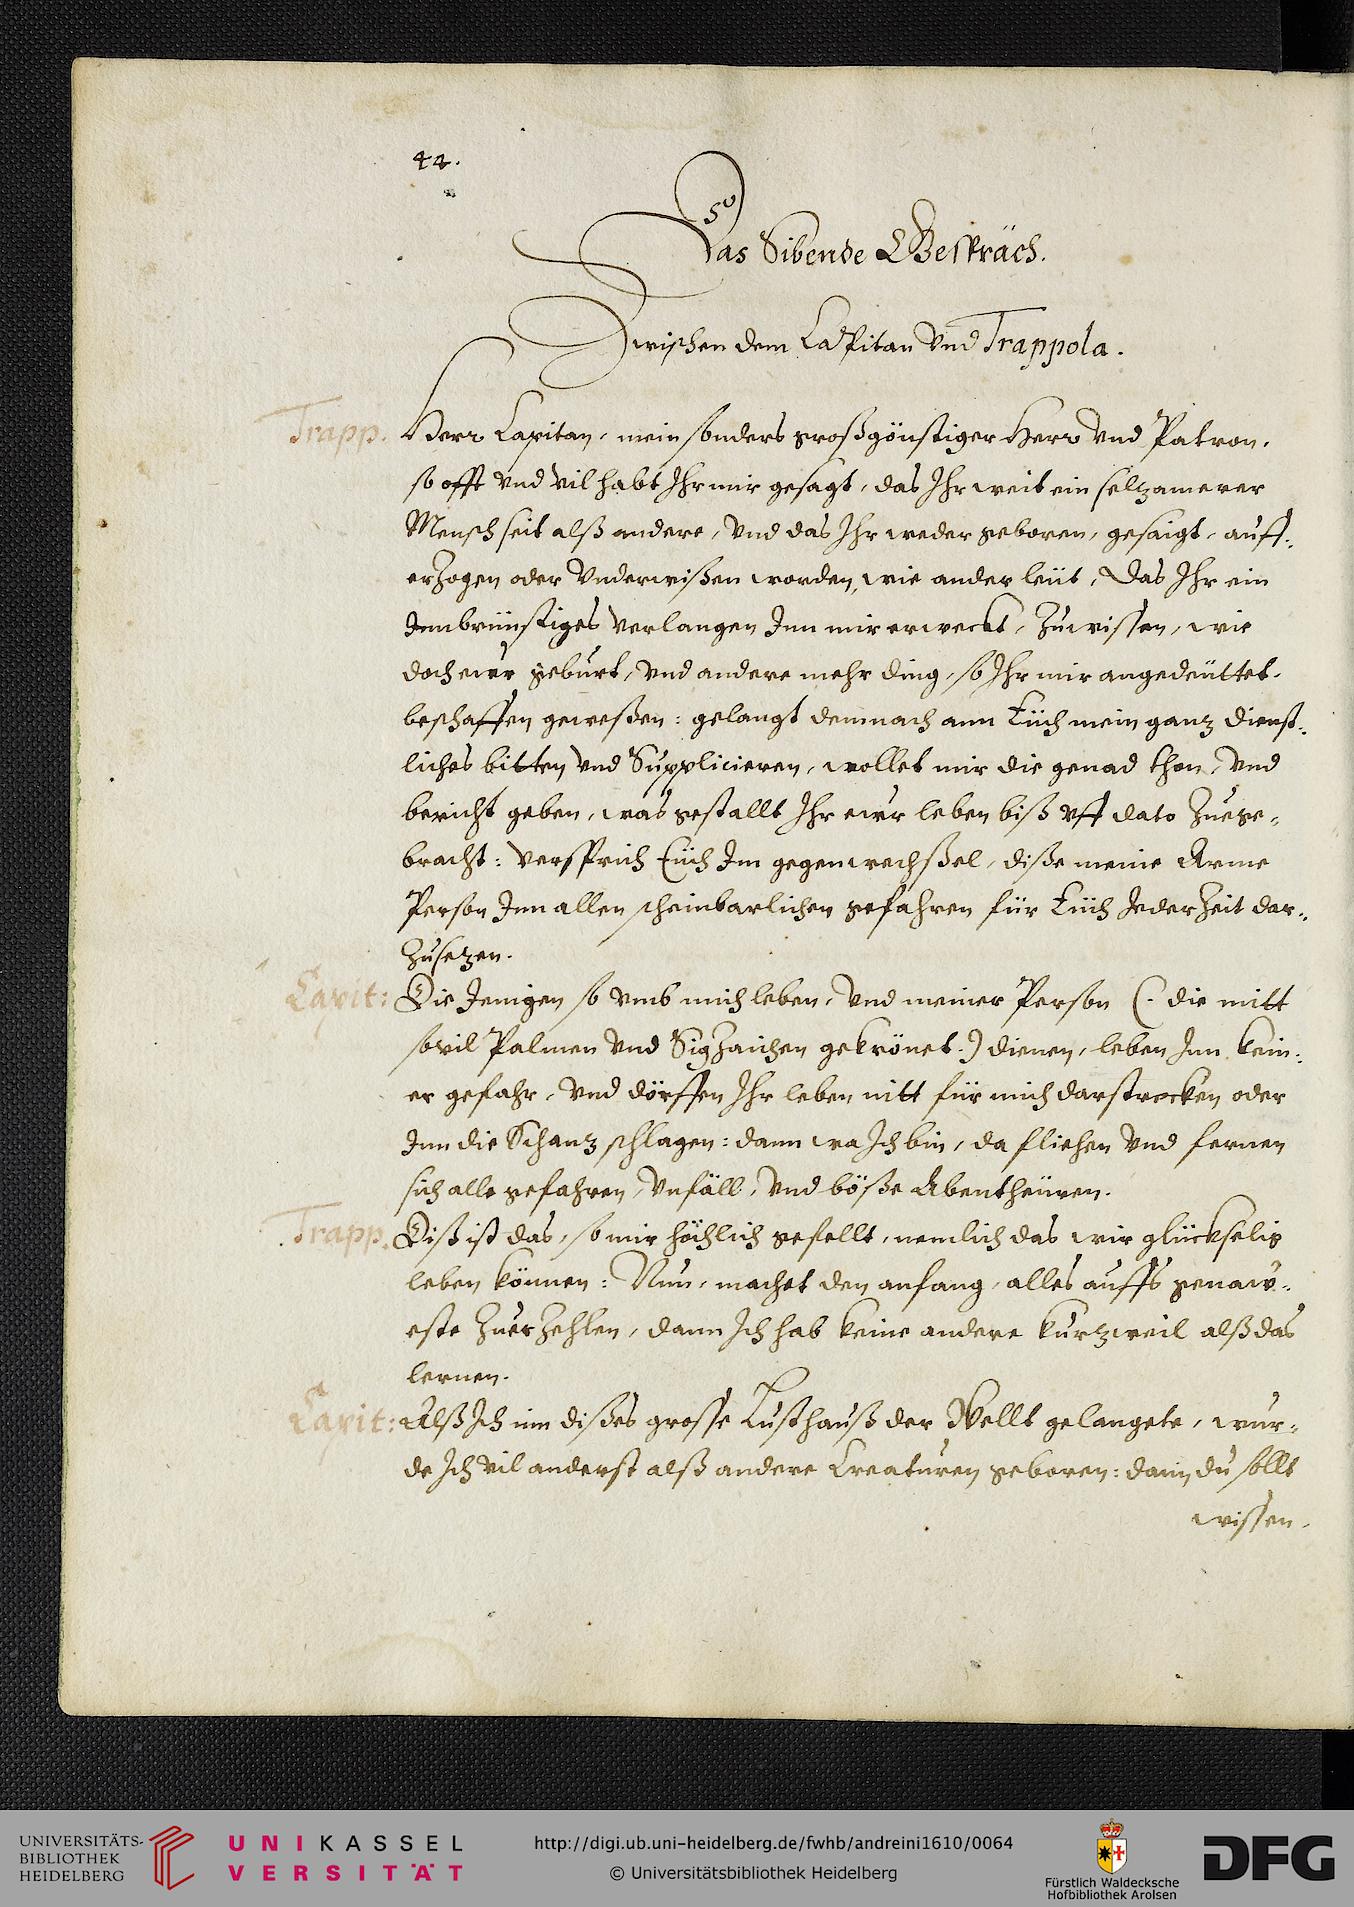 44.
Das Sibende Gespräch.
Zwischen dem Capitan Vnd Trappola.
Trapp. Herr Capitan, mein sonders großgönstiger Herr Vnd Patron,
so offt Vnd Vil habt Ihr mir gesagt, das Ihr weit ein selzamerer
Mensch seit alß andere, Vnd das Ihr weder geboren, gesaigt, auff-
erzogen oder Vnderwißen worden, wie ander leüt, Das Ihr ein
Innbrünstiges Verlangen Inn mir erweckt, Zuwissen, wie
doch ewr geburt, Vnd andere mehr ding, so Ihr mir angedeüttet,
beschaffen geweßen: gelangt demnach ann Eüch mein ganz dienst-
liches bitten Vnd Supplicieren, wollet mir die genad thon, Vnd
bericht geben, was gestallt Ihr ewr leben biß vff dato Zuege-
bracht: Versprich Eüch Im gegenwechßel, diße meine Arme
Person Inn allen scheinbarlichen gefahren für Eüch Jeder Zeit dar-
Zusezen.
Capit: Die Jenigen so vmb mich leben, Vnd meiner Person (. die mitt
sovil Palmen Vnd SigZaichen gekrönet.) dienen, leben Inn kein-
er gefahr, Vnd dörffen Ihr leben nitt für mich darstrecken oder
Inn die Schanz schlagen: dann wa Ich bin, da fliehen Vnd fernen
sich alle gefahren, Vnfäll, Vnd böße Abentheüren.
Trapp. Diß ist das, so mir höchlich gefellt, nemlich das wir glückselig
leben können: Nun, machet den anfang, alles auffs genaw-
este ZuerZehlen, dann Ich hab keine andere kurzweil alß das
lernen.
Capit: Alß Ich inn dißes grosse Lusthauß der Wellt gelangete, wur-
de Ich Vil anderst alß andere Creaturen geboren: dann du sollt
wissen,
UNIVERSITÄTS-
BIBLIOTHEK
HEIDELBERG
UNIKASSEL
VERSITÄT
http://digi.ub.uni-heidelberg.de/fwhb/andreini1610/0064
© Universitätsbibliothek Heidelberg
Fürstlich Waldecksche
Hofbibliothek Arolsen
DFG